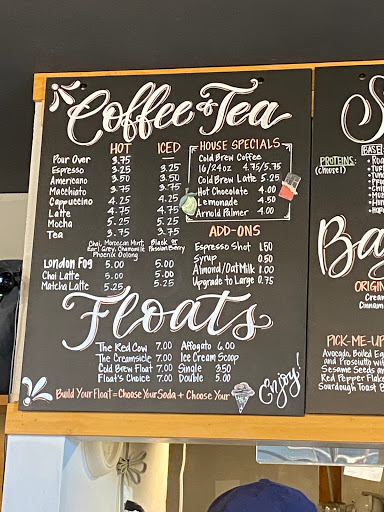 Coffee & Tea
HOT ICED
Pour Over 3.75
Espresso 3.25 3.25
Americano 3.50 3.50
Macchiato 3.75 3.75
Cappuccino 4.25 4.25
Latte 4.75 4.75
Mocha 5.25 5.25
Tea 3.75 3.75
Chai, Moroccan Mint, Black or
Earl Grey, Chamomile Passionberry
Phoenix Oolong
London Fog 5.00 5.00
Chai Latte 5.00 5.00
Matcha Latte 5.25 5.25
HOUSE SPECIALS
Cold Brew Coffee
16/24oz 4.75/5.75
Cold Brew Latte 5.25
Hot Chocolate 4.00
Lemonade 4.50
Arnold Palmer 4.00
ADD-ONS
Espresso Shot 1.50
Syrup 0.50
Almond/Oat Milk 1.00
Upgrade to Large 0.75
Floats
The Red Cow 7.00
The Creamsicle 7.00
Cold Brew Float 7.00
Float's Choice 7.00
Affogato 6.00
Ice Cream Scoop
Single 3.50
Double 5.00
Enjoy!
Build Your Float = Choose Your Soda + Choose Your
PROTEINS:
(Choose 1)
Ba
ORIGIN
Crea
Cinnam
PICK-ME-UP
Avocado, Boiled Eg
and Prosciutto wit
Sesame Seeds an
Red Pepper Flake
Sourdough Toast B